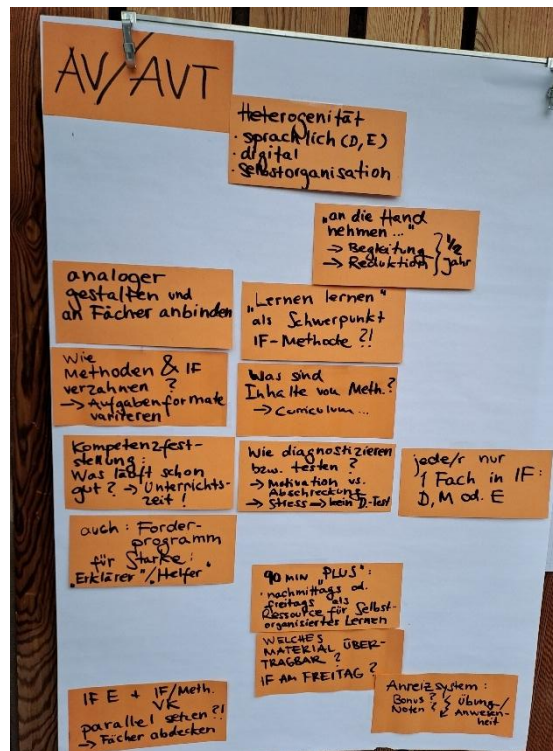 AV/AVT
Heterogenität
· sprachlich (D, E)
· digital
· selbstorganisation
"an die Hand
nehmen..."
→ Begleitung
→ Reduktion
} 1/2
Jahr
analoger
gestalten und
an Fächer anbinden
"Lernen lernen"
als Schwerpunkt
IF-Methode ?!
Wie
Methoden & IF
verzahnen ?
→ Aufgabenformate
variieren
Was sind
Inhalte von Meth.?
→ Curriculum...
Kompetenzfest-
stellung:
Was läuft schon
gut? → Unterrichts-
zeit !
Wie diagnostizieren
bzw. testen ?
→ Motivation vs.
Abschreckung
→ Stress → kein D-Test
jede/r nur
1 Fach in IF:
D, M od. E
auch: Forder-
programm
für Starke:
"Erklärer"/"Helfer"
90 min "PLUS":
· nachmittags od.
freitags als
Ressource für Selbst-
organisiertes Lernen
WELCHES
MATERIAL ÜBER-
TRAGBAR ?
IF AM FREITAG ?
IF E + IF/Meth.
VK
parallel setzen ?!
→ Fächer abdecken
Anreizsystem:
Bonus ? } Übung/
Noten ? } Anwesen-
heit